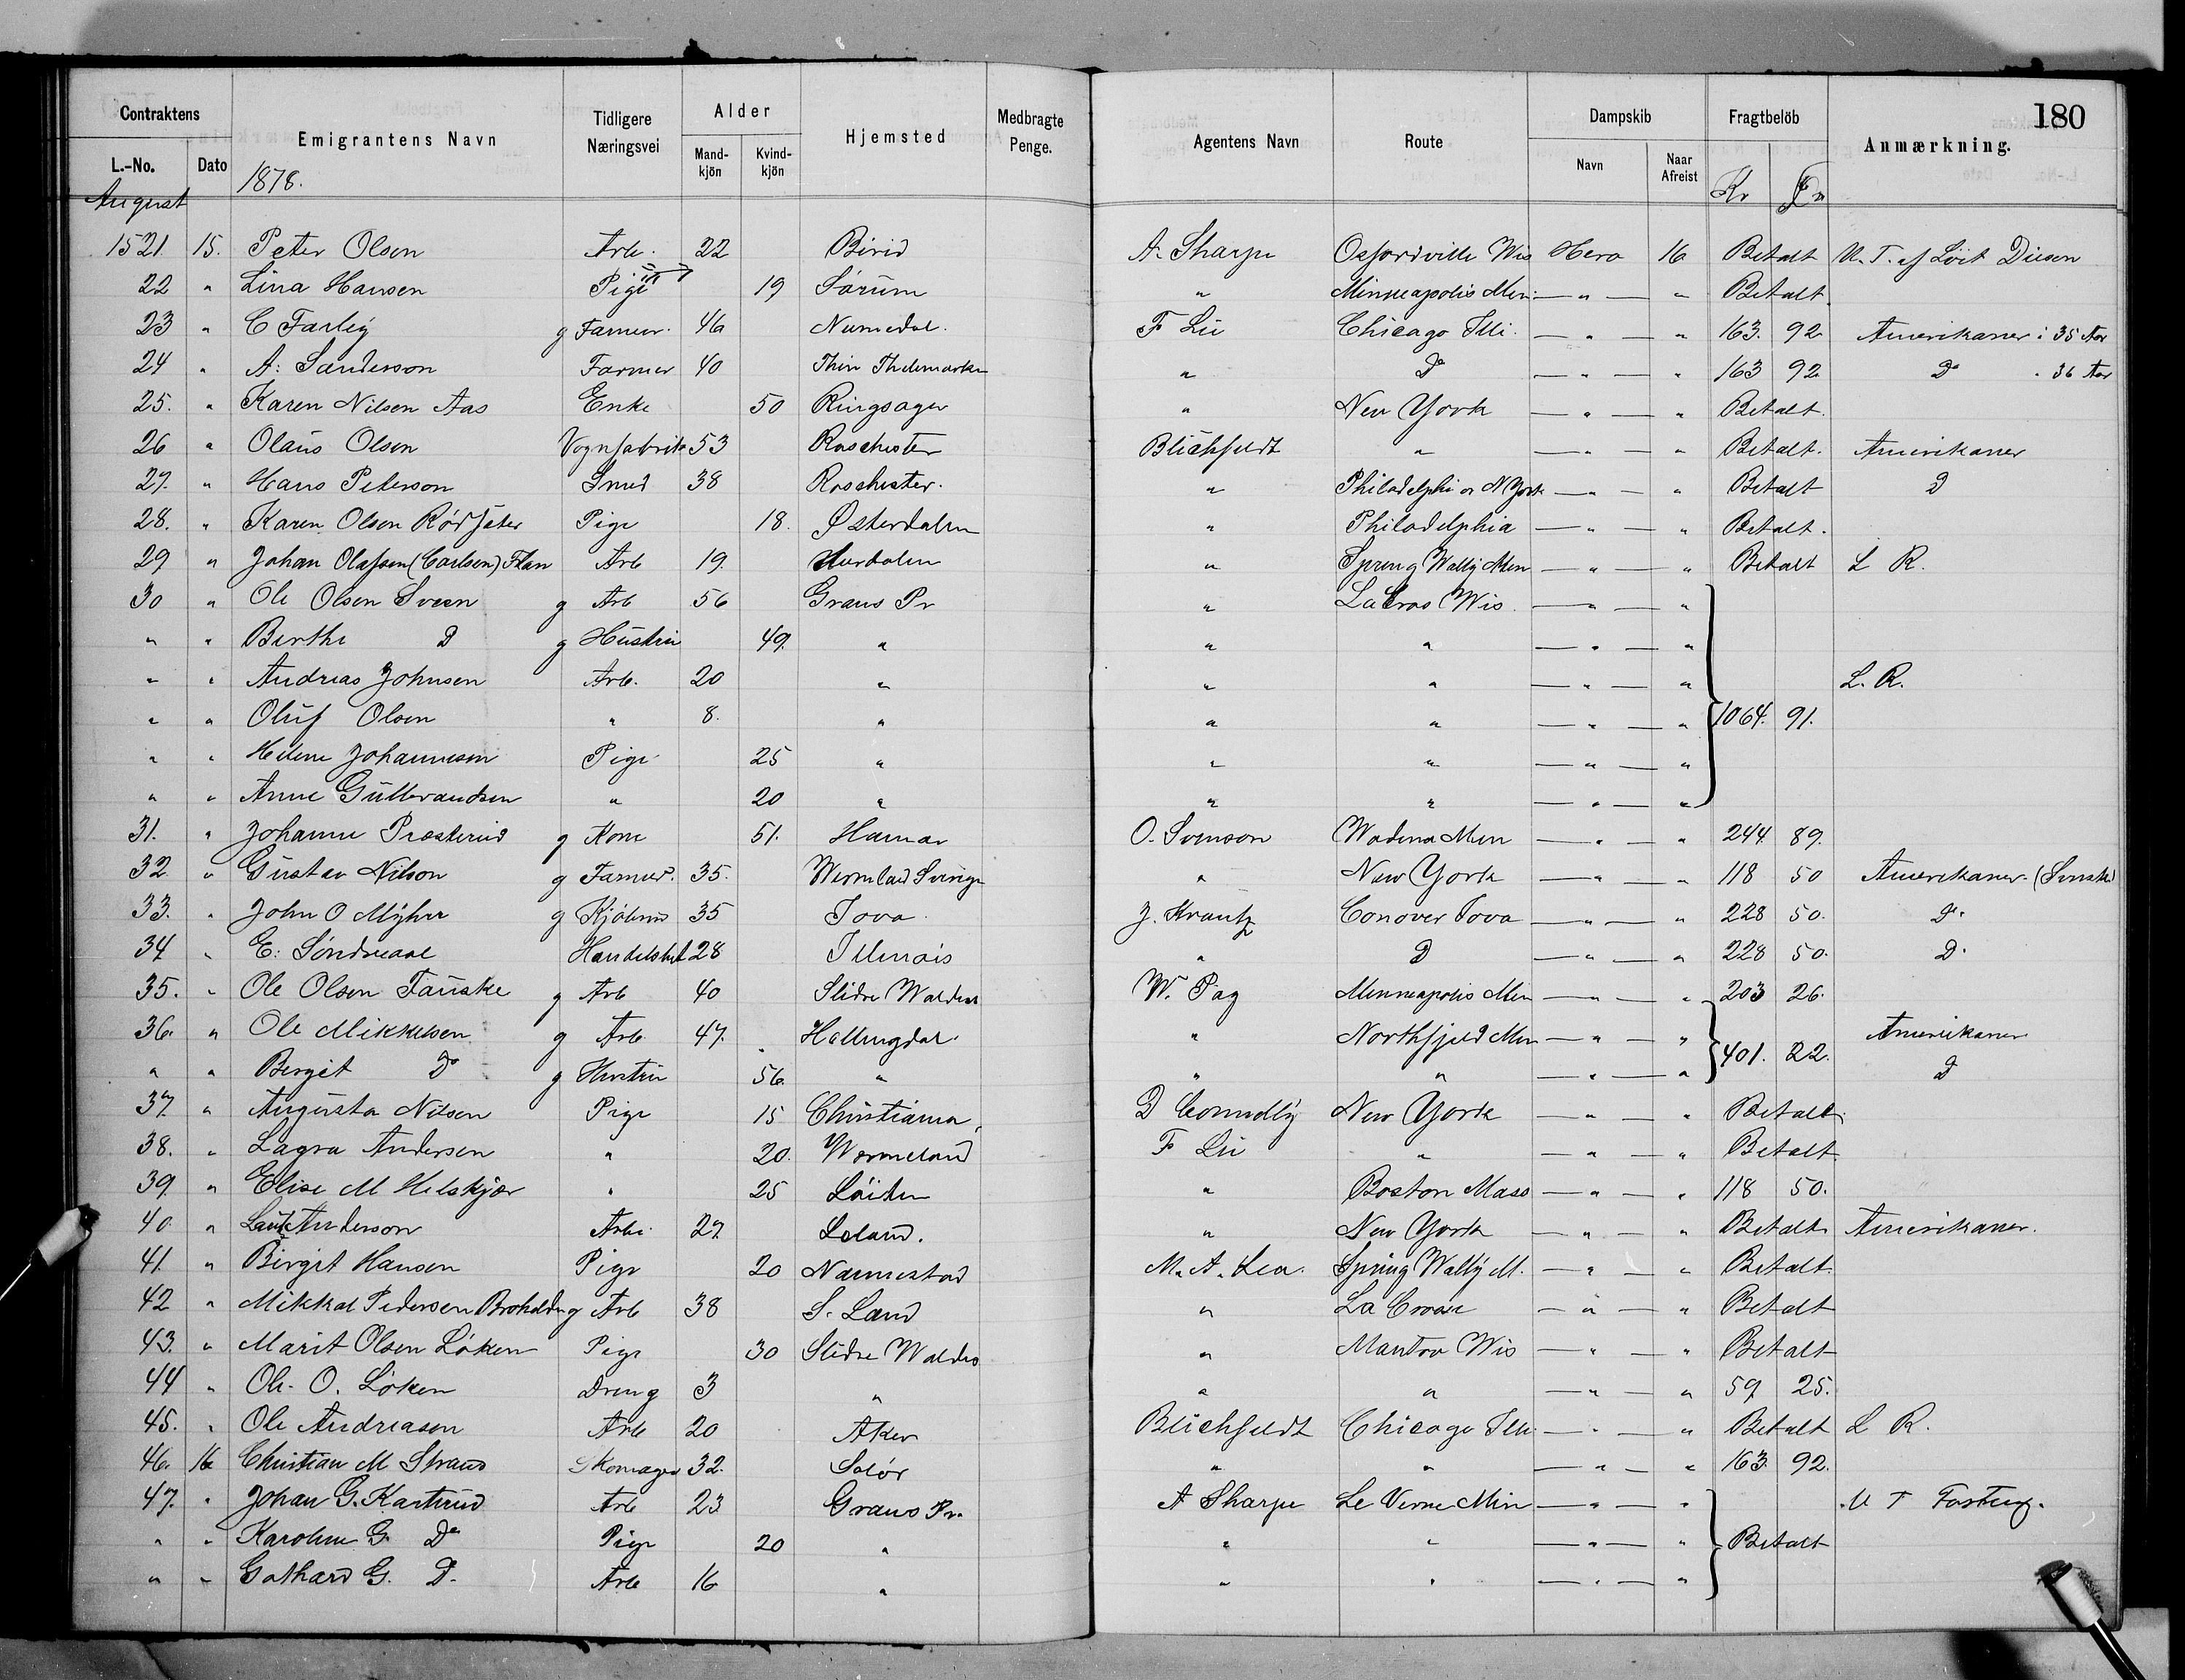 180
Contraktens Emigrantens Navn Tidligere Næringsvei Alder Hjemsted Medbragte Penge. Agentens Navn Route Dampskib Fragtbelöb Anmærkning.
L.-No. Dato 1878. Mand-kjön Kvind-kjön Navn Naar Afreist Kr
August
1521. 15. Peter Olsen Arb. 22 Birid A. Sharpe Osfordville Wis Hero 16 Betalt
22 " Lina Hansen Pige 19 Sørum " Minneapolis Min. — " — " Betalt.
23 " C Farley g Farmer. 46 Numedal. F Lie Chicago Illi. — " — " 163. 92 Amerikaner i 35 Aar
24 " A. Sanderson Farmer 40 Thin Thelemarken " Do — " — " 163 92 Do " 36 Aar
25. " Karen Nilsen Aas Enke 50 Ringsager " New York — " — " Betalt.
26 " Olaus Olsen Vognfabrik 53 Roschester Blichfeldt " — " — " Betalt. Amerikaner
27. " Hans Peterson Smed 38 Roschester. " Philadelphi or N York — " — " Betalt D
28. " Karen Olsen Rødsæter Pige 18. Østerdalen " Philadelphia — " — " Betalt.
29 " Johan Olafsen (Carlsen) Flan Arb 19. Hurdalen " Spring Wally Min — " — " Betalt L R.
30 " Ole Olsen Sveen g Arb 56 Grans Pr " LaCros Wis. — " — "
" " Berthe D g Hustru 49. " " " — " — "
" " Andreas Johnsen Arb. 20 " " " — " — " L. R.
" " Oluf Olsen " 8. " " " — " — " 1064. 91.
" " Helene Johannesen Pige 25 " " " — " — "
" " Anne Gulbrandsen " 20 " " " — " — "
31. " Johanne Prosterud g Kone 51. Hamar O. Svenson Wadena Min — " — " 244. 89.
32. " Gustav Nilson g Farmer. 35. Wermland Sverige " New York — " — " 118 50 Amerikaner (Svensk)
33. " John O Myhre g Kjøbmd 35 Iova. J. Krantz Conover Iova — " — " 228 50. Do
34 " E. Søndreaal Handelsbet 28 Illinois " D — " — " 228 50. D.
35. " Ole Olsen Fauske g Arb 40 Slidre Walders W. Pag Minneapolis Min — " — " 203 26.
36. " Ole Mikkelsen g Arb 47. Hallingdal. " Northfjeld Min — " — " 401. 22. Amerikaner
" " Bergit Do g Hustru 56. " " " — " — " D
37. " Augusta Nilsen Pige 15 Christiania D Connelly New York — " — " Betalt.
38. " Lagra Andersen " 20. Wermeland F Lie " — " — " Betalt.
39. " Elise M Helskjær " 25 Løiten " Boston Mass — " — " 118 50.
40. " Anderson Arb. 27. Loland. " New York — " — " Betalt Amerikaner.
41. " Birgit Hansen Pige 20 Nannestad M. A. Lea. Spring Wally M. — " — " Betalt.
42 " Mikkel Pedersen g Arb 38 S. Land " La Crosse — " — " Betalt
43. " Marit Olsen Løken Pige 30 Slidre Waldrs " Mantov Wis — " — " Betalt
44 " Ole O. Løken Dreng 3 " " " — " — " 59 25.
45. " Ole Andreasen Arb 20 Aker Blichfeldt Chicago Ill. — " — " Betalt L R.
46. 16 Christian M Strand Skomager 32. Solør " " — " — " 163. 92.
47. " Johan G. Kasterud Arb 23 Grans Pr. A Sharpe Le Verne Min — " — "
" " Karoline G. Do Pige 20 " " " — " — " Betalt
" " Gothard G. D. Arb 16 " " " — " — "